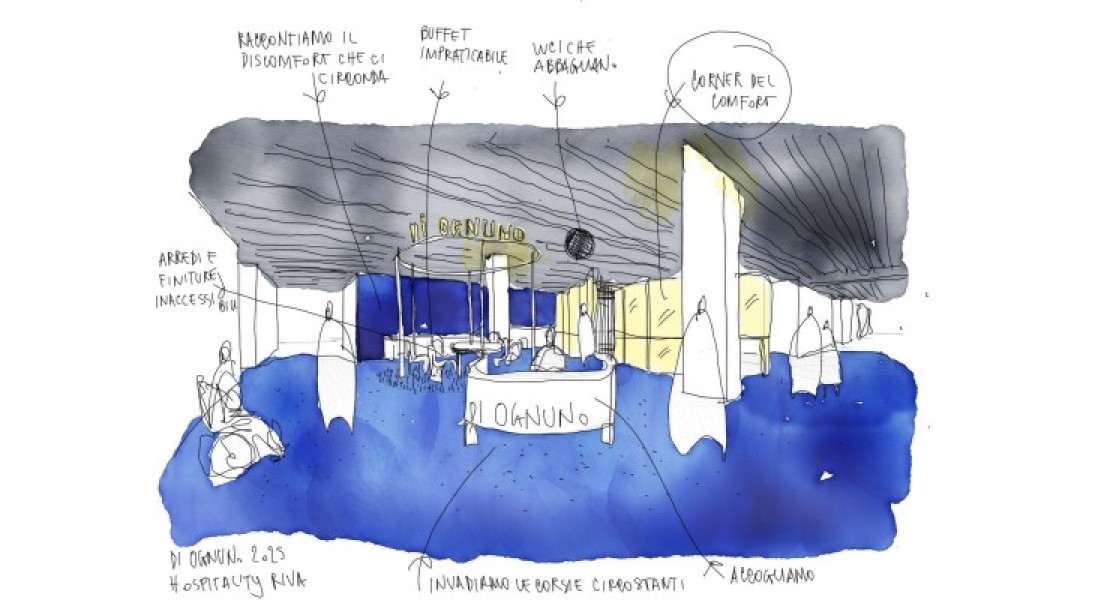 RACCONTIAMO IL
DISCOMFORT CHE CI
CIRCONDA
BUFFET
IMPRATICABILE
WC CHE
ABBAGLIANO
CORNER DEL
COMFORT
DI OGNUNO
ARREDI E
FINITURE
INACCESSIBILI
DI OGNUNO
DI OGNUNO 2025
HOSPITALITY RIVA
INVADIAMO LE CORSIE CIRCOSTANTI
ACCOGLIAMO